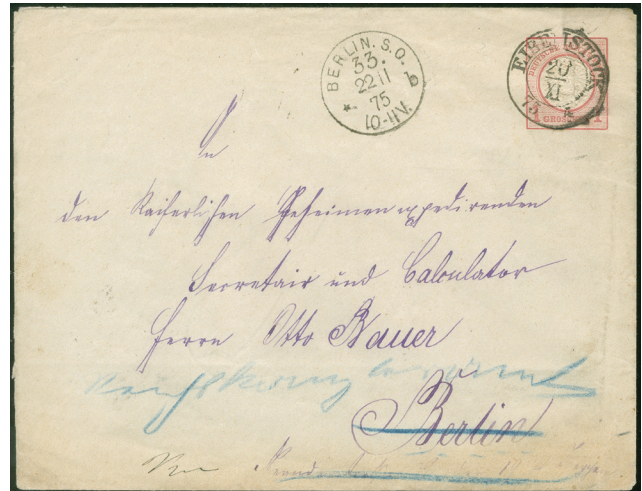 BERLIN. S.O.
33.
22 11
75
10-11V.
EIBENSTOCK
20
XI
75
DEUTSCHE
1 GROSCHEN 1
An
den Kaiserlichen Geheimen expedirenden
Secretair und Calculator
Herrn Otto Bauer
Berlin